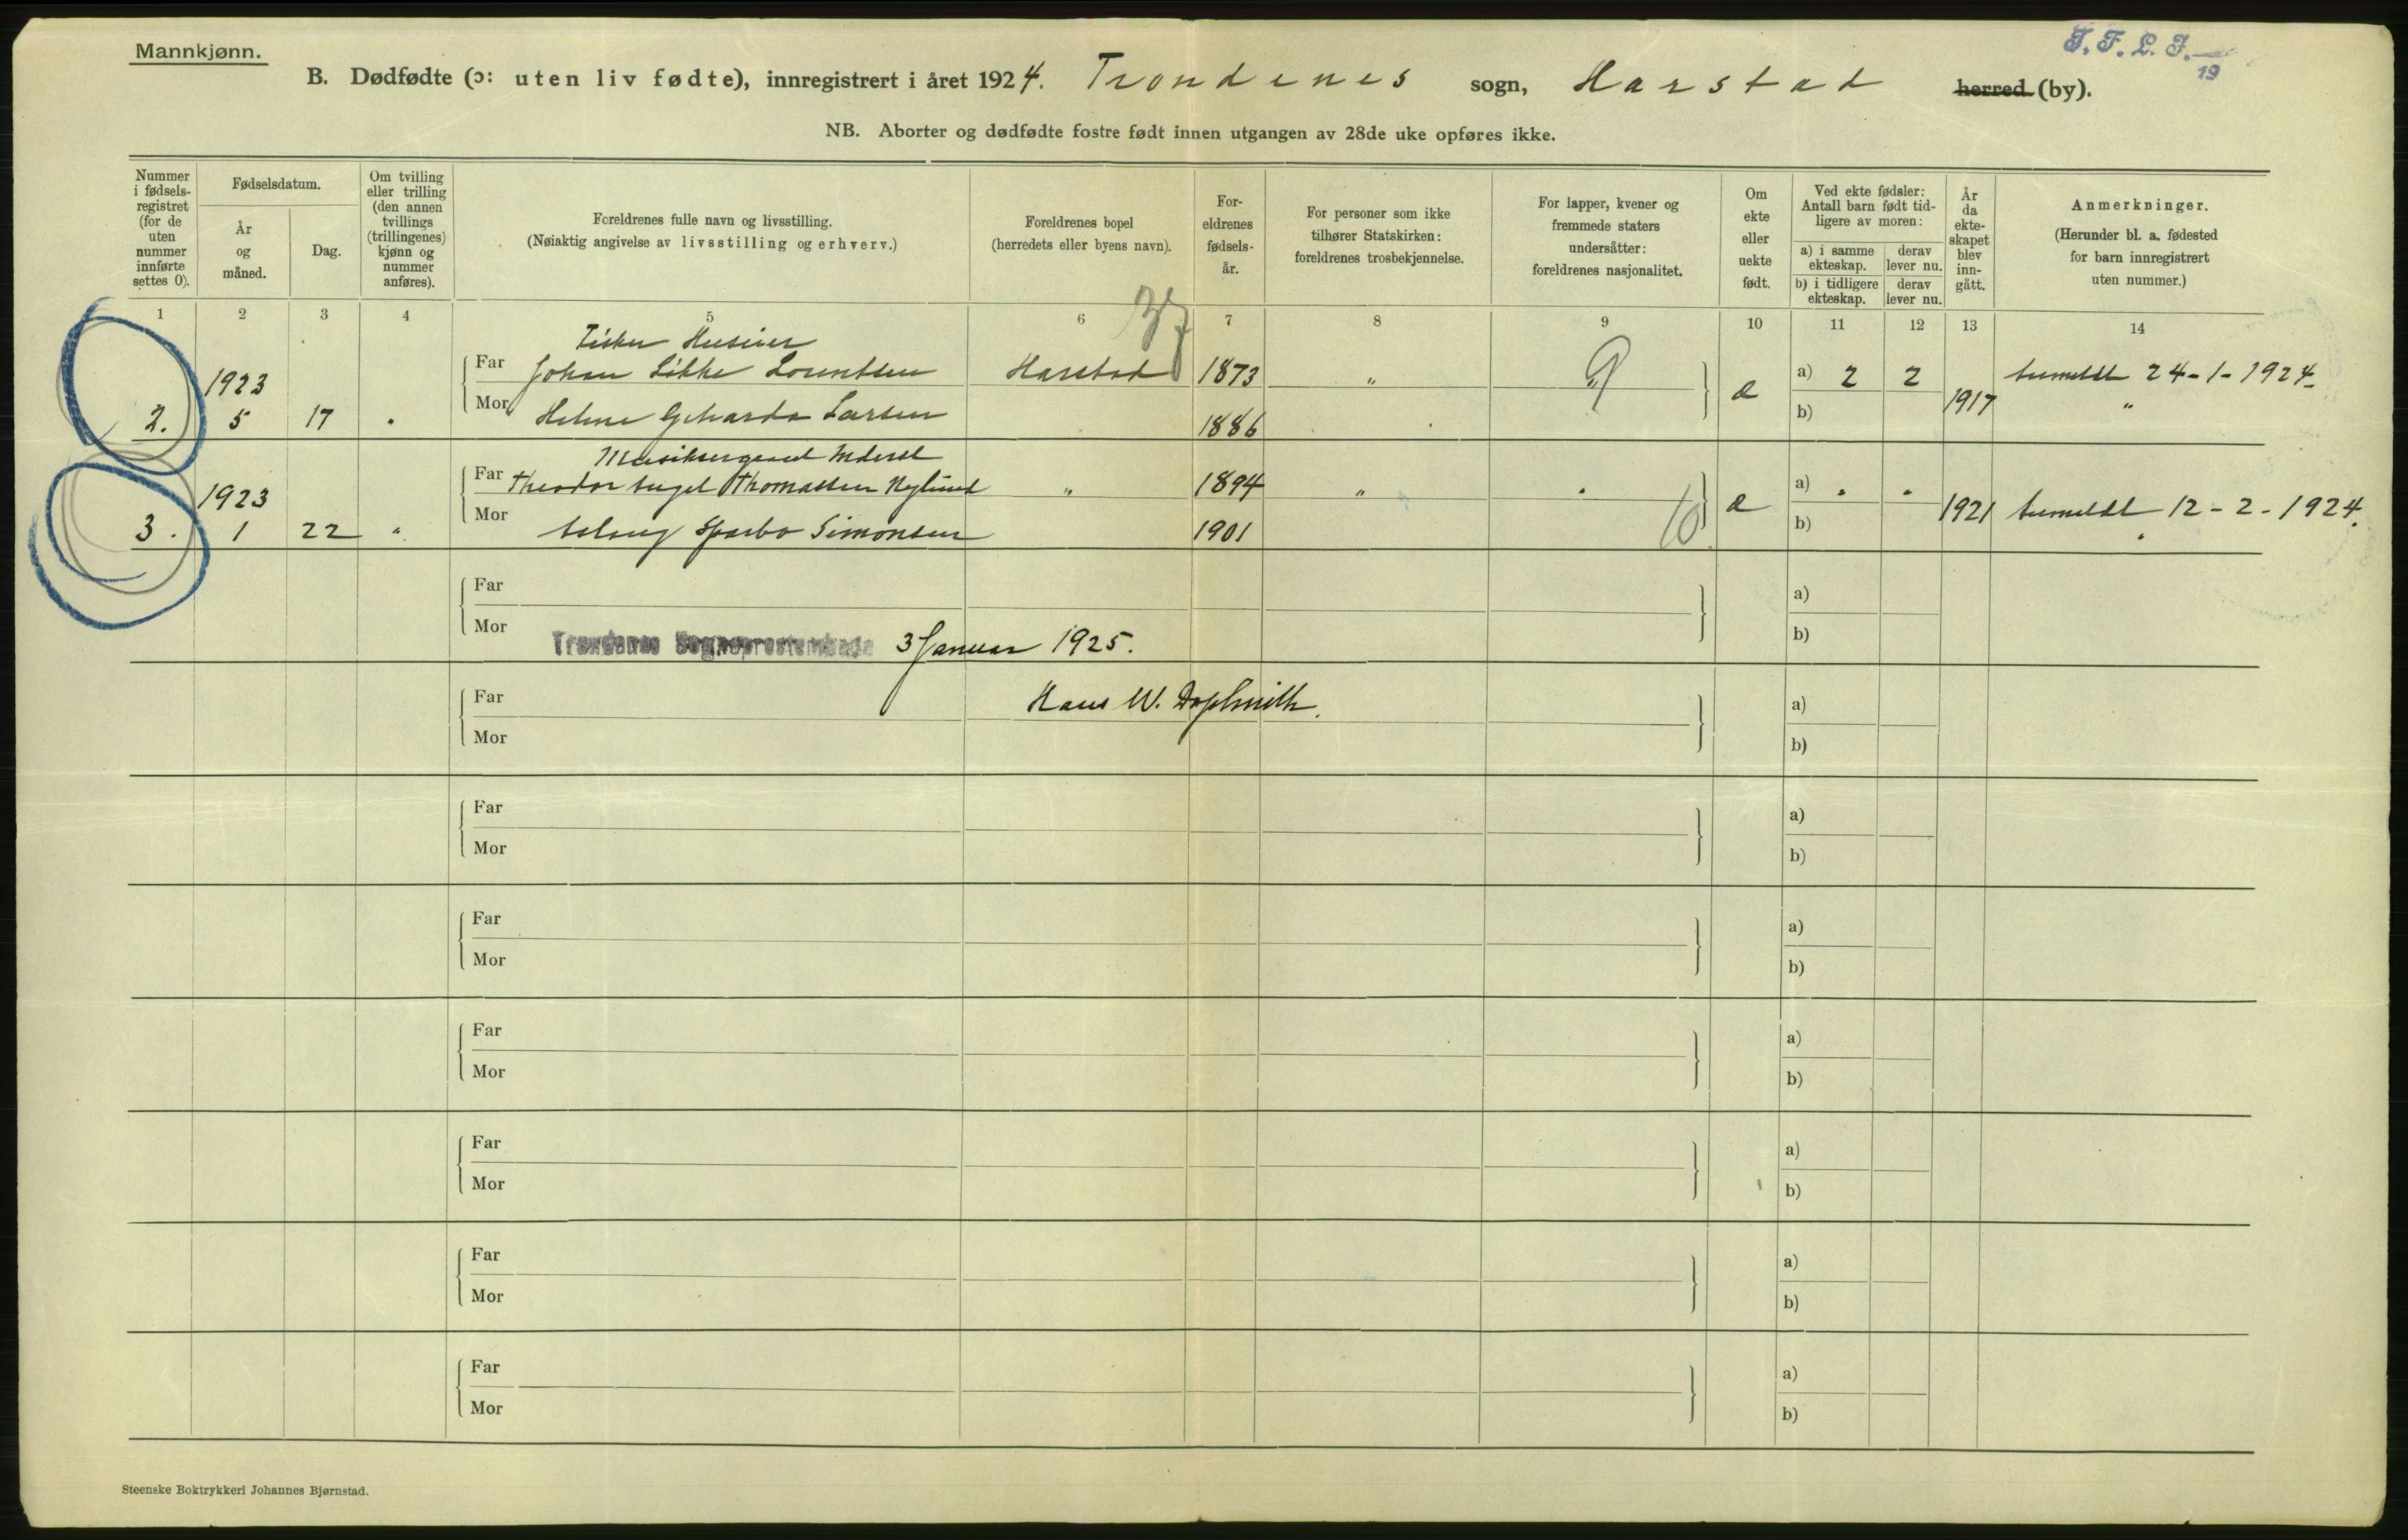 Mannkjønn.
T. F. L. J. 19
B. Dødfødte (ɔ: uten liv fødte), innregistrert i året 1924. Trondenes sogn, Harstad herred (by).
NB. Aborter og dødfødte fostre født innen utgangen av 28de uke opføres ikke.
Nummer i fødsels-registret (for de uten nummer innførte settes 0).
Fødselsdatum.
År og måned.
Dag.
Om tvilling eller trilling (den annen tvillings (trillingenes) kjønn og nummer anføres).
Foreldrenes fulle navn og livsstilling.
(Nøiaktig angivelse av livsstilling og erhverv.)
Foreldrenes bopel
(herredets eller byens navn).
For-eldrenes fødsels-år.
For personer som ikke tilhører Statskirken: foreldrenes trosbekjennelse.
For lapper, kvener og fremmede staters undersåtter: foreldrenes nasjonalitet.
Om ekte eller uekte født.
Ved ekte fødsler: Antall barn født tid-ligere av moren:
a) i samme ekteskap. derav lever nu.
b) i tidligere ekteskap. derav lever nu.
År da ekte-skapet blev inn-gått.
Anmerkninger.
(Herunder bl. a. fødested for barn innregistrert uten nummer.)
1 2 3 4 5 6 7 8 9 10 11 12 13 14
Fisker Huseier
1923 Far Johan Likke Lorentsen Harstad 1873 " " a) 2 2 anmeldt 24-1-1924
2. 5 17 Mor Helene Gerharda Larsen 1886 e b) 1917 "
1923 Far Theodor Thomassen Nylund " 1894 " a) " "
3. 1 22 " Mor Aslaug Sparbo Simonsen 1901 e b) 1921 anmeldt 12-2-1924.
9
10
Far a)
Mor b)
Trondenes Sogneprestembede 3 Januar 1925.
Far Hans W. a)
Mor b)
Far a)
Mor b)
Far a)
Mor b)
Far a)
Mor b)
Far a)
Mor b)
Far a)
Mor b)
Far a)
Mor b)
Steenske Boktrykkeri Johannes Bjørnstad.